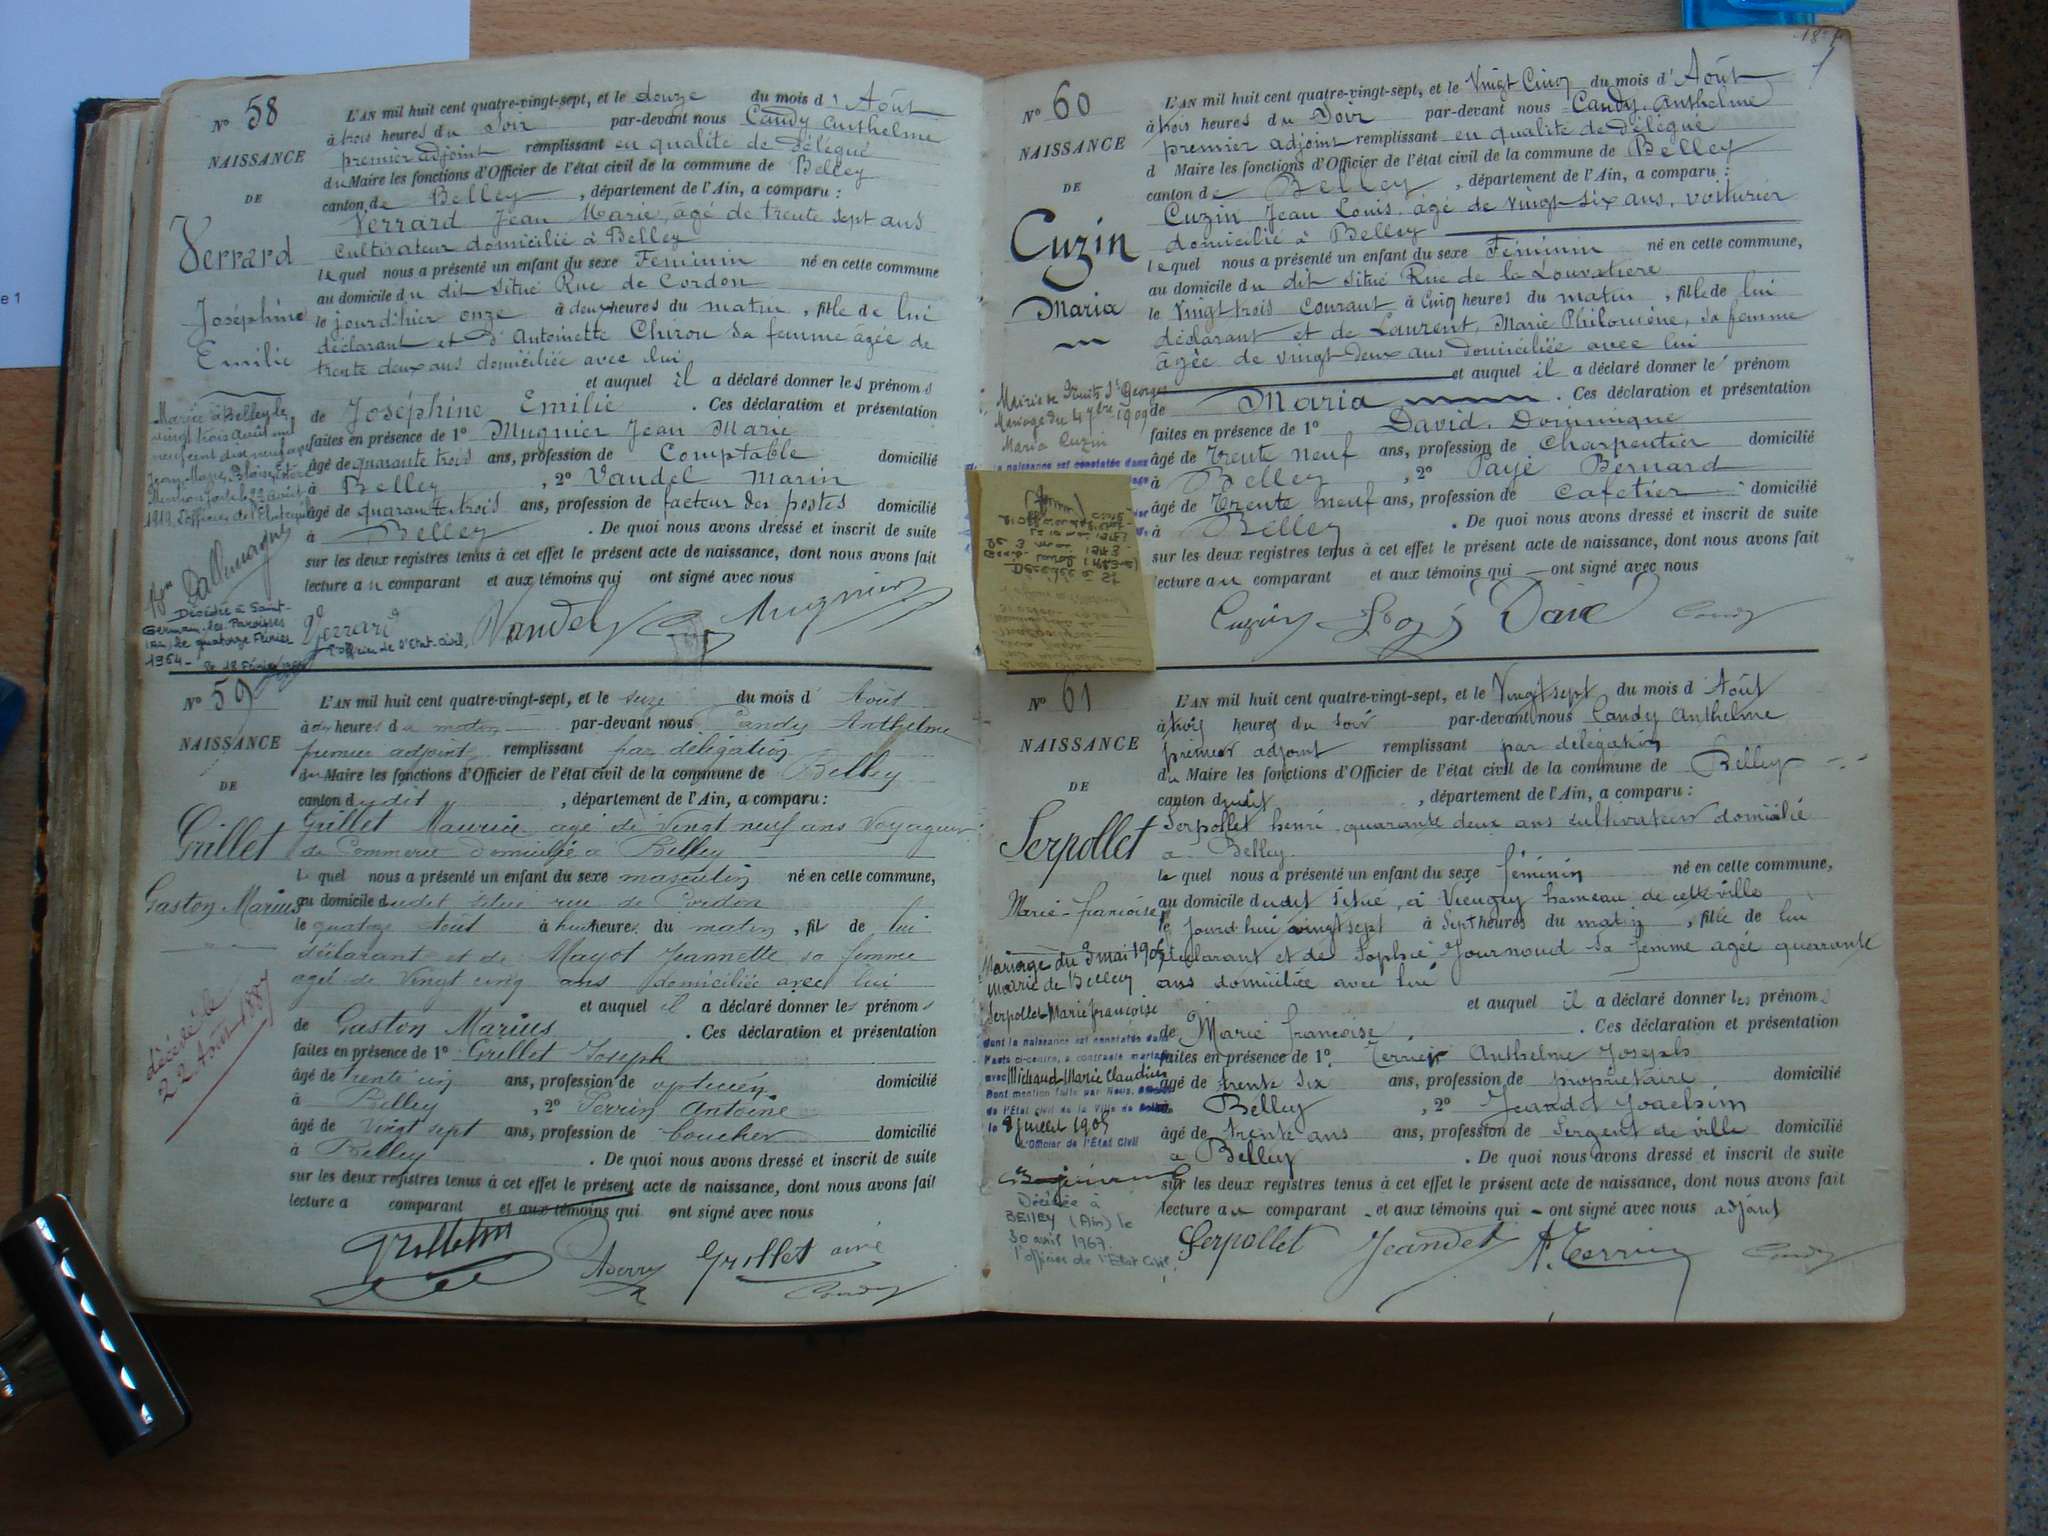 e 1
N° 58
NAISSANCE
DE
Verrard
Joséphine
Emilie
L'AN mil huit cent quatre-vingt-sept, et le douze du mois d'Août
à trois heures du Soir par-devant nous Candy Anthelme
premier adjoint remplissant en qualité de délégué
du Maire les fonctions d'Officier de l'état civil de la commune de Belley
canton de Belley, département de l'Ain, a comparu :
Verrard Jean Marie, âgé de trente sept ans
cultivateur domicilié à Belley
lequel nous a présenté un enfant du sexe Féminin né en cette commune
au domicile du dit situé Rue de Cordon
le jourd'hier onze à deux heures du matin, fille de lui
déclarant et d'Antoinette Chirou sa femme âgée de
trente deux ans domiciliée avec lui
et auquel il a déclaré donner les prénoms
de Joséphine Emilie. Ces déclaration et présentation
faites en présence de 1° Mugnier Jean Marie
âgé de quarante trois ans, profession de Comptable domicilié
à Belley, 2° Vaudel Marin
âgé de quarante trois ans, profession de facteur des postes domicilié
à Belley. De quoi nous avons dressé et inscrit de suite
sur les deux registres tenus à cet effet le présent acte de naissance, dont nous avons fait
lecture au comparant et aux témoins qui ont signé avec nous
Mariée à Belley le
vingt trois août mil
neuf cent dix neuf avec
Décédée à Saint-
Germain-les-Paroisses
(Ain) le quatorze Février
1964 - le 18 Février
l'officier de l'Etat-Civil,
Verrard Vaudel Mugnier
N° 59
NAISSANCE
DE
Grillet
Gaston Marius
décédé le
22 Août 1887
L'AN mil huit cent quatre-vingt-sept, et le seize du mois d'Août
à dix heures du matin par-devant nous Candy Anthelme
premier adjoint remplissant par délégation
du Maire les fonctions d'Officier de l'état civil de la commune de Belley
canton dudit, département de l'Ain, a comparu :
Grillet Maurice agé de vingt neuf ans voyageur
de Commerce domicilié à Belley
lequel nous a présenté un enfant du sexe masculin né en cette commune,
au domicile dudit situé rue de Cordon
le quatorze Août à huit heures du matin, fils de lui
déclarant et de Mayot Jeannette sa femme
agé de vingt cinq ans domiciliée avec lui
et auquel il a déclaré donner les prénoms
de Gaston Marius. Ces déclaration et présentation
faites en présence de 1° Grillet Joseph
âgé de trente cinq ans, profession de opticien domicilié
à Belley, 2° Perrin Antoine
âgé de vingt sept ans, profession de boucher domicilié
à Belley. De quoi nous avons dressé et inscrit de suite
sur les deux registres tenus à cet effet le présent acte de naissance, dont nous avons fait
lecture a comparant et aux témoins qui ont signé avec nous
Grillet ainé
Candy
N° 60
NAISSANCE
DE
Cuzin
Maria
L'AN mil huit cent quatre-vingt-sept, et le Vingt Cinq du mois d'Août
à trois heures du Soir par-devant nous Candy Anthelme
premier adjoint remplissant en qualité de délégué
d Maire les fonctions d'Officier de l'état civil de la commune de Belley
canton de Belley, département de l'Ain, a comparu :
Cuzin Jean Louis, âgé de vingt-six ans, voiturier
domicilié à Belley
lequel nous a présenté un enfant du sexe Féminin né en cette commune,
au domicile du dit situé Rue de la Louvatière
le Vingt trois courant à Cinq heures du matin, fille de lui
déclarant et de Laurent, Marie Philomène, sa femme
âgée de vingt-deux ans domiciliée avec lui
et auquel il a déclaré donner le prénom
de Maria. Ces déclaration et présentation
faites en présence de 1° David, Dominique
âgé de Trente neuf ans, profession de Charpentier domicilié
à Belley, 2° Payé Bernard
âgé de Trente neuf ans, profession de Cafetier domicilié
à Belley. De quoi nous avons dressé et inscrit de suite
sur les deux registres tenus à cet effet le présent acte de naissance, dont nous avons fait
lecture au comparant et aux témoins qui ont signé avec nous
Mariage du 4 7bre 1909
Maria Cuzin
la naissance est constatée dans
Cuzin Candy
N° 61
NAISSANCE
DE
Serpollet
Marie-françoise
L'AN mil huit cent quatre-vingt-sept, et le Vingt sept du mois d'Août
à trois heures du soir par-devant nous Candy Anthelme
premier adjoint remplissant par délégation
du Maire les fonctions d'Officier de l'état civil de la commune de Belley
canton dudit, département de l'Ain, a comparu :
Serpollet henri quarante deux ans cultivateur domicilié
a Belley
lequel nous a présenté un enfant du sexe féminin né en cette commune,
au domicile dudit situé, à Vieugey hameau de cette ville
le jourd'hui vingt sept à Sept heures du matin, fille de lui
déclarant et de Sophie Journoud sa femme agée quarante
ans domiciliée avec lui
et auquel il a déclaré donner les prénoms
de Marie françoise. Ces déclaration et présentation
faites en présence de 1° Terrier Anthelme Joseph
âgé de trente six ans, profession de propriétaire domicilié
à Belley, 2° Jeandet Joachim
âgé de trente ans ans, profession de Sergent de ville domicilié
à Belley. De quoi nous avons dressé et inscrit de suite
sur les deux registres tenus à cet effet le présent acte de naissance, dont nous avons fait
lecture au comparant et aux témoins qui ont signé avec nous adjoint
Mariage du 3 mai 1905
mairie de Belley
Serpollet Marie françoise
dont la naissance est constatée dans
l'acte ci-contre, a contracté mariage
avec Michaud Marie Claudius
Dont mention faite par Nous,
de l'Etat Civil de la Ville de Belley
le 8 juillet 1905
L'Officier de l'Etat Civil
Décédée à
BELLEY (Ain) le
30 avril 1967.
l'officier de l'Etat Civil,
Serpollet Jeandet A. Terrier Candy